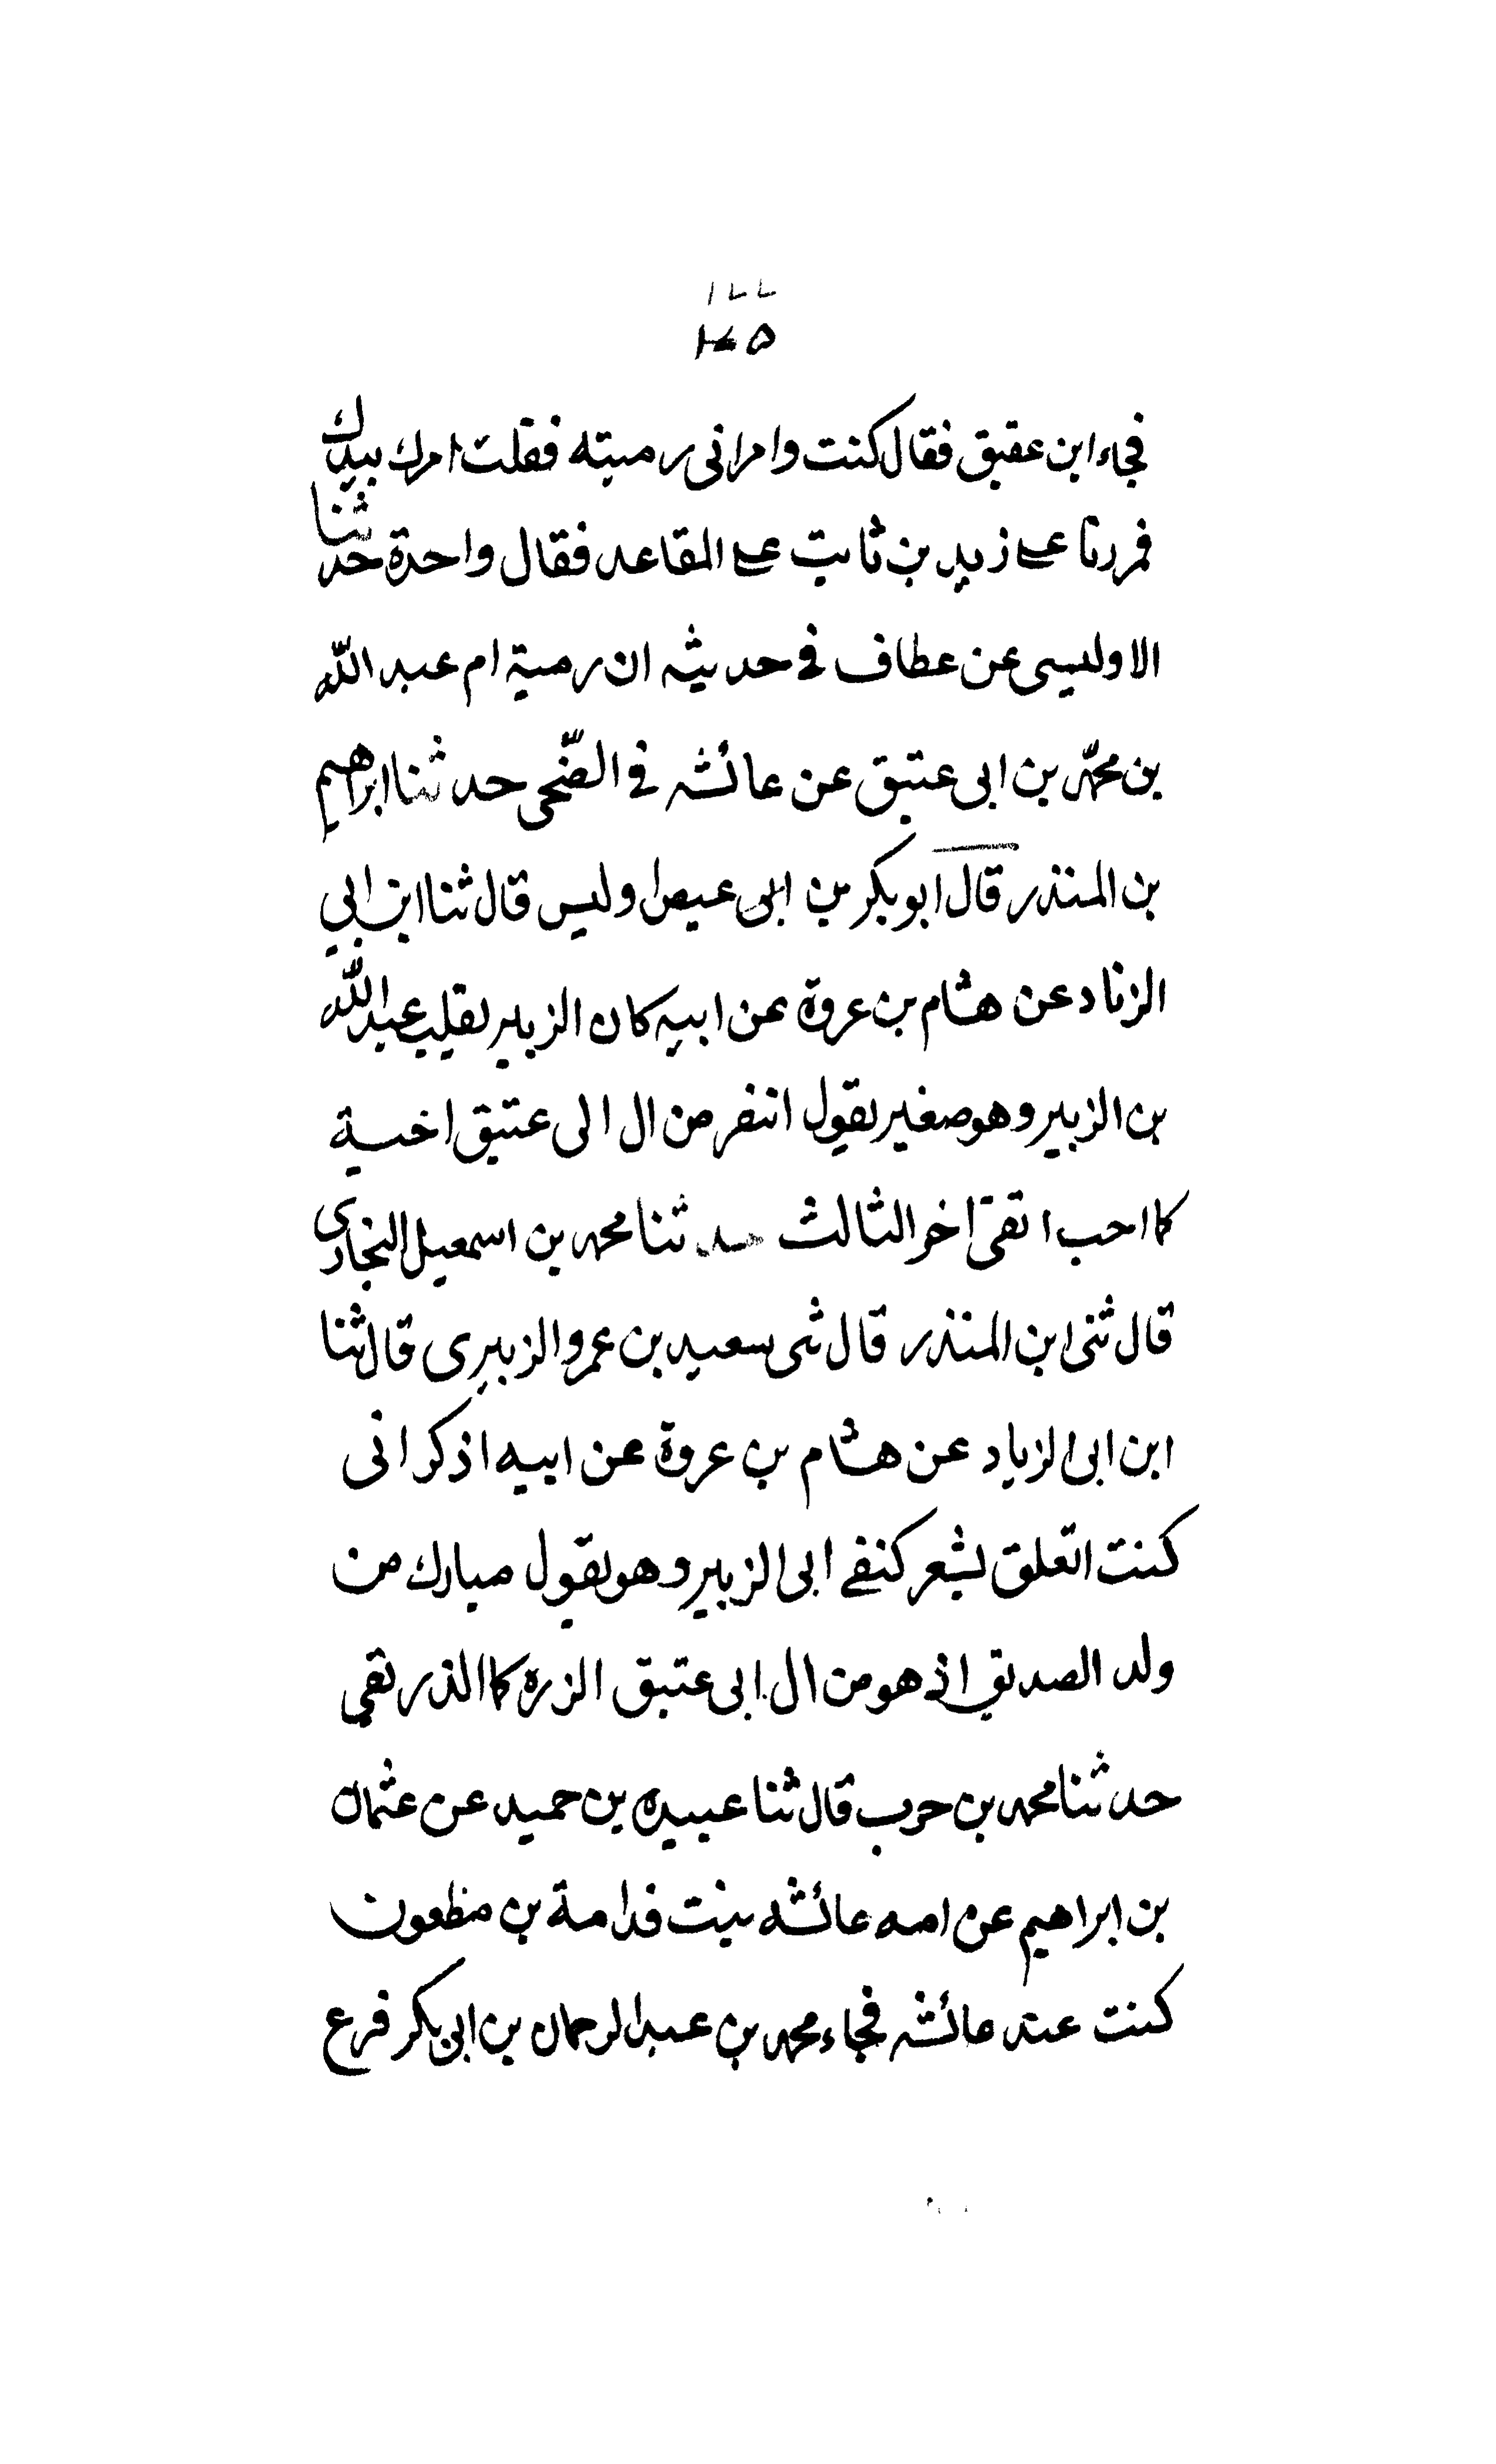 فجاء ابن عقيق فقال كنت وامراتى رميته فقلت امرك بيدك
فمررنا على زيد بن ثابت على المقاعد فقال واحدة حدثنا
الاوليسى عن عطاف فى حديثه ان رمية ام عبد الله
بن محمّد بن ابى عتيق عن عائشه فى الضّحى حدثنا ابراهيم
بن المنذر قال ابو بكر بن ابى اوليس قال ثنا ابن ابي
الزناد عن هشام بن عروة عن ابيه كان الزبير يقلب عبد الله
بن الزبير وهو صغير يقول انتفر من ال الى عتيق اخسية
كما احب اتقى اخر الثالث حدثنا محمد بن اسمعيل البخارى
قال ثنى ابن المنذر قال ثى سعيد بن عمرو الزبيرى قال ثنا
ابن ابى الزياد عن هشام بن عروة عن ابيه اذكر انى
كنت اتعلق بشعر كنفے ابى الزبير وهو يقول مبارك من
ولد الصديق اذ هو من ال ابى عتيق الزره كما الذر تقي
حدثنا محمد بن حرب قال ثنا عبيده بن حميد عن عثمان
بن ابراهيم عن امه عائشه بنت قدامة بن مظعون
كنت عند عائشه فجاء محمد بن عبد الرحمان بن ابى بكر فرع